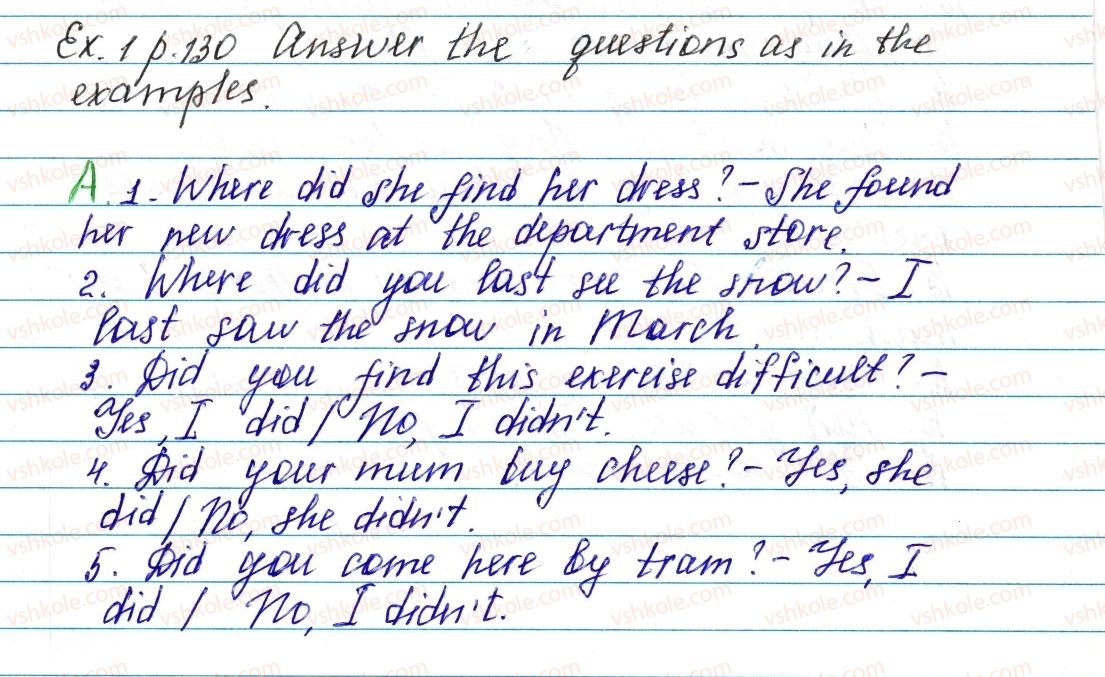 Ex. 1 p.130 Answer the questions as in the
examples.
A. 1. Where did she find her dress? – She found
her new dress at the department store.
2. Where did you last see the snow? – I
last saw the snow in March.
3. Did you find this exercise difficult? –
Yes, I did / No, I didn't.
4. Did your mum buy cheese? – Yes, she
did / No, she didn't.
5. Did you come here by tram? – Yes, I
did / No, I didn't.
vshkole.com